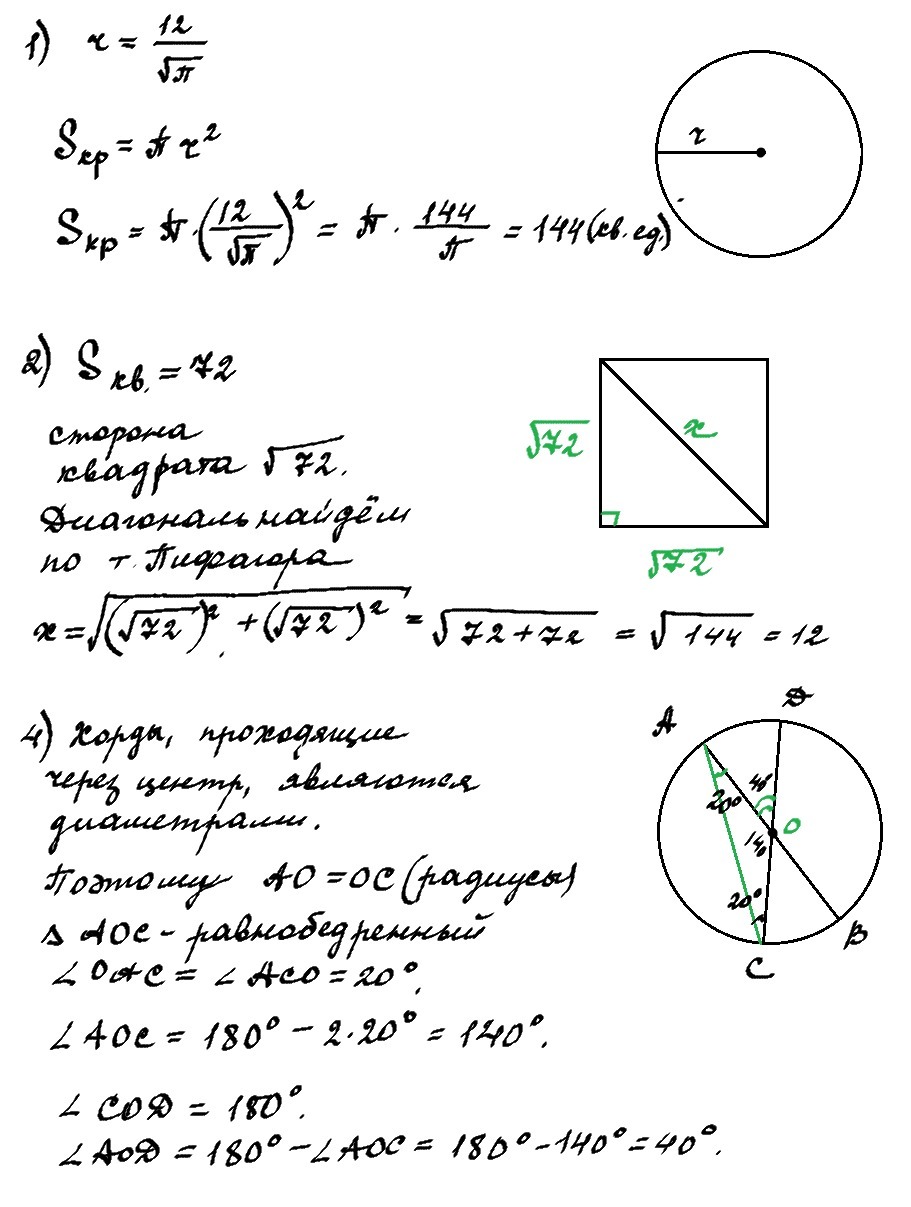 1) r = 12/√π
r
Sкр = π r²
Sкр = π·(12/√π)² = π · 144/π = 144 (кв. ед.)
2) Sкв. = 72
сторона
квадрата √72.
Диагональ найдём
по т. Пифагора
√72
x
√72
x = √((√72)² + (√72)²) = √(72+72) = √144 = 12
4) Хорды, проходящие
через центр, являются
диаметрами.
Поэтому AO = OC (радиусы)
Δ AOC - равнобедренный
∠OAC = ∠ACO = 20°.
∠AOC = 180° - 2·20° = 140°.
∠COD = 180°.
∠AOD = 180° - ∠AOC = 180° - 140° = 40°.
A
D
20°
40°
O
140
20°
B
C